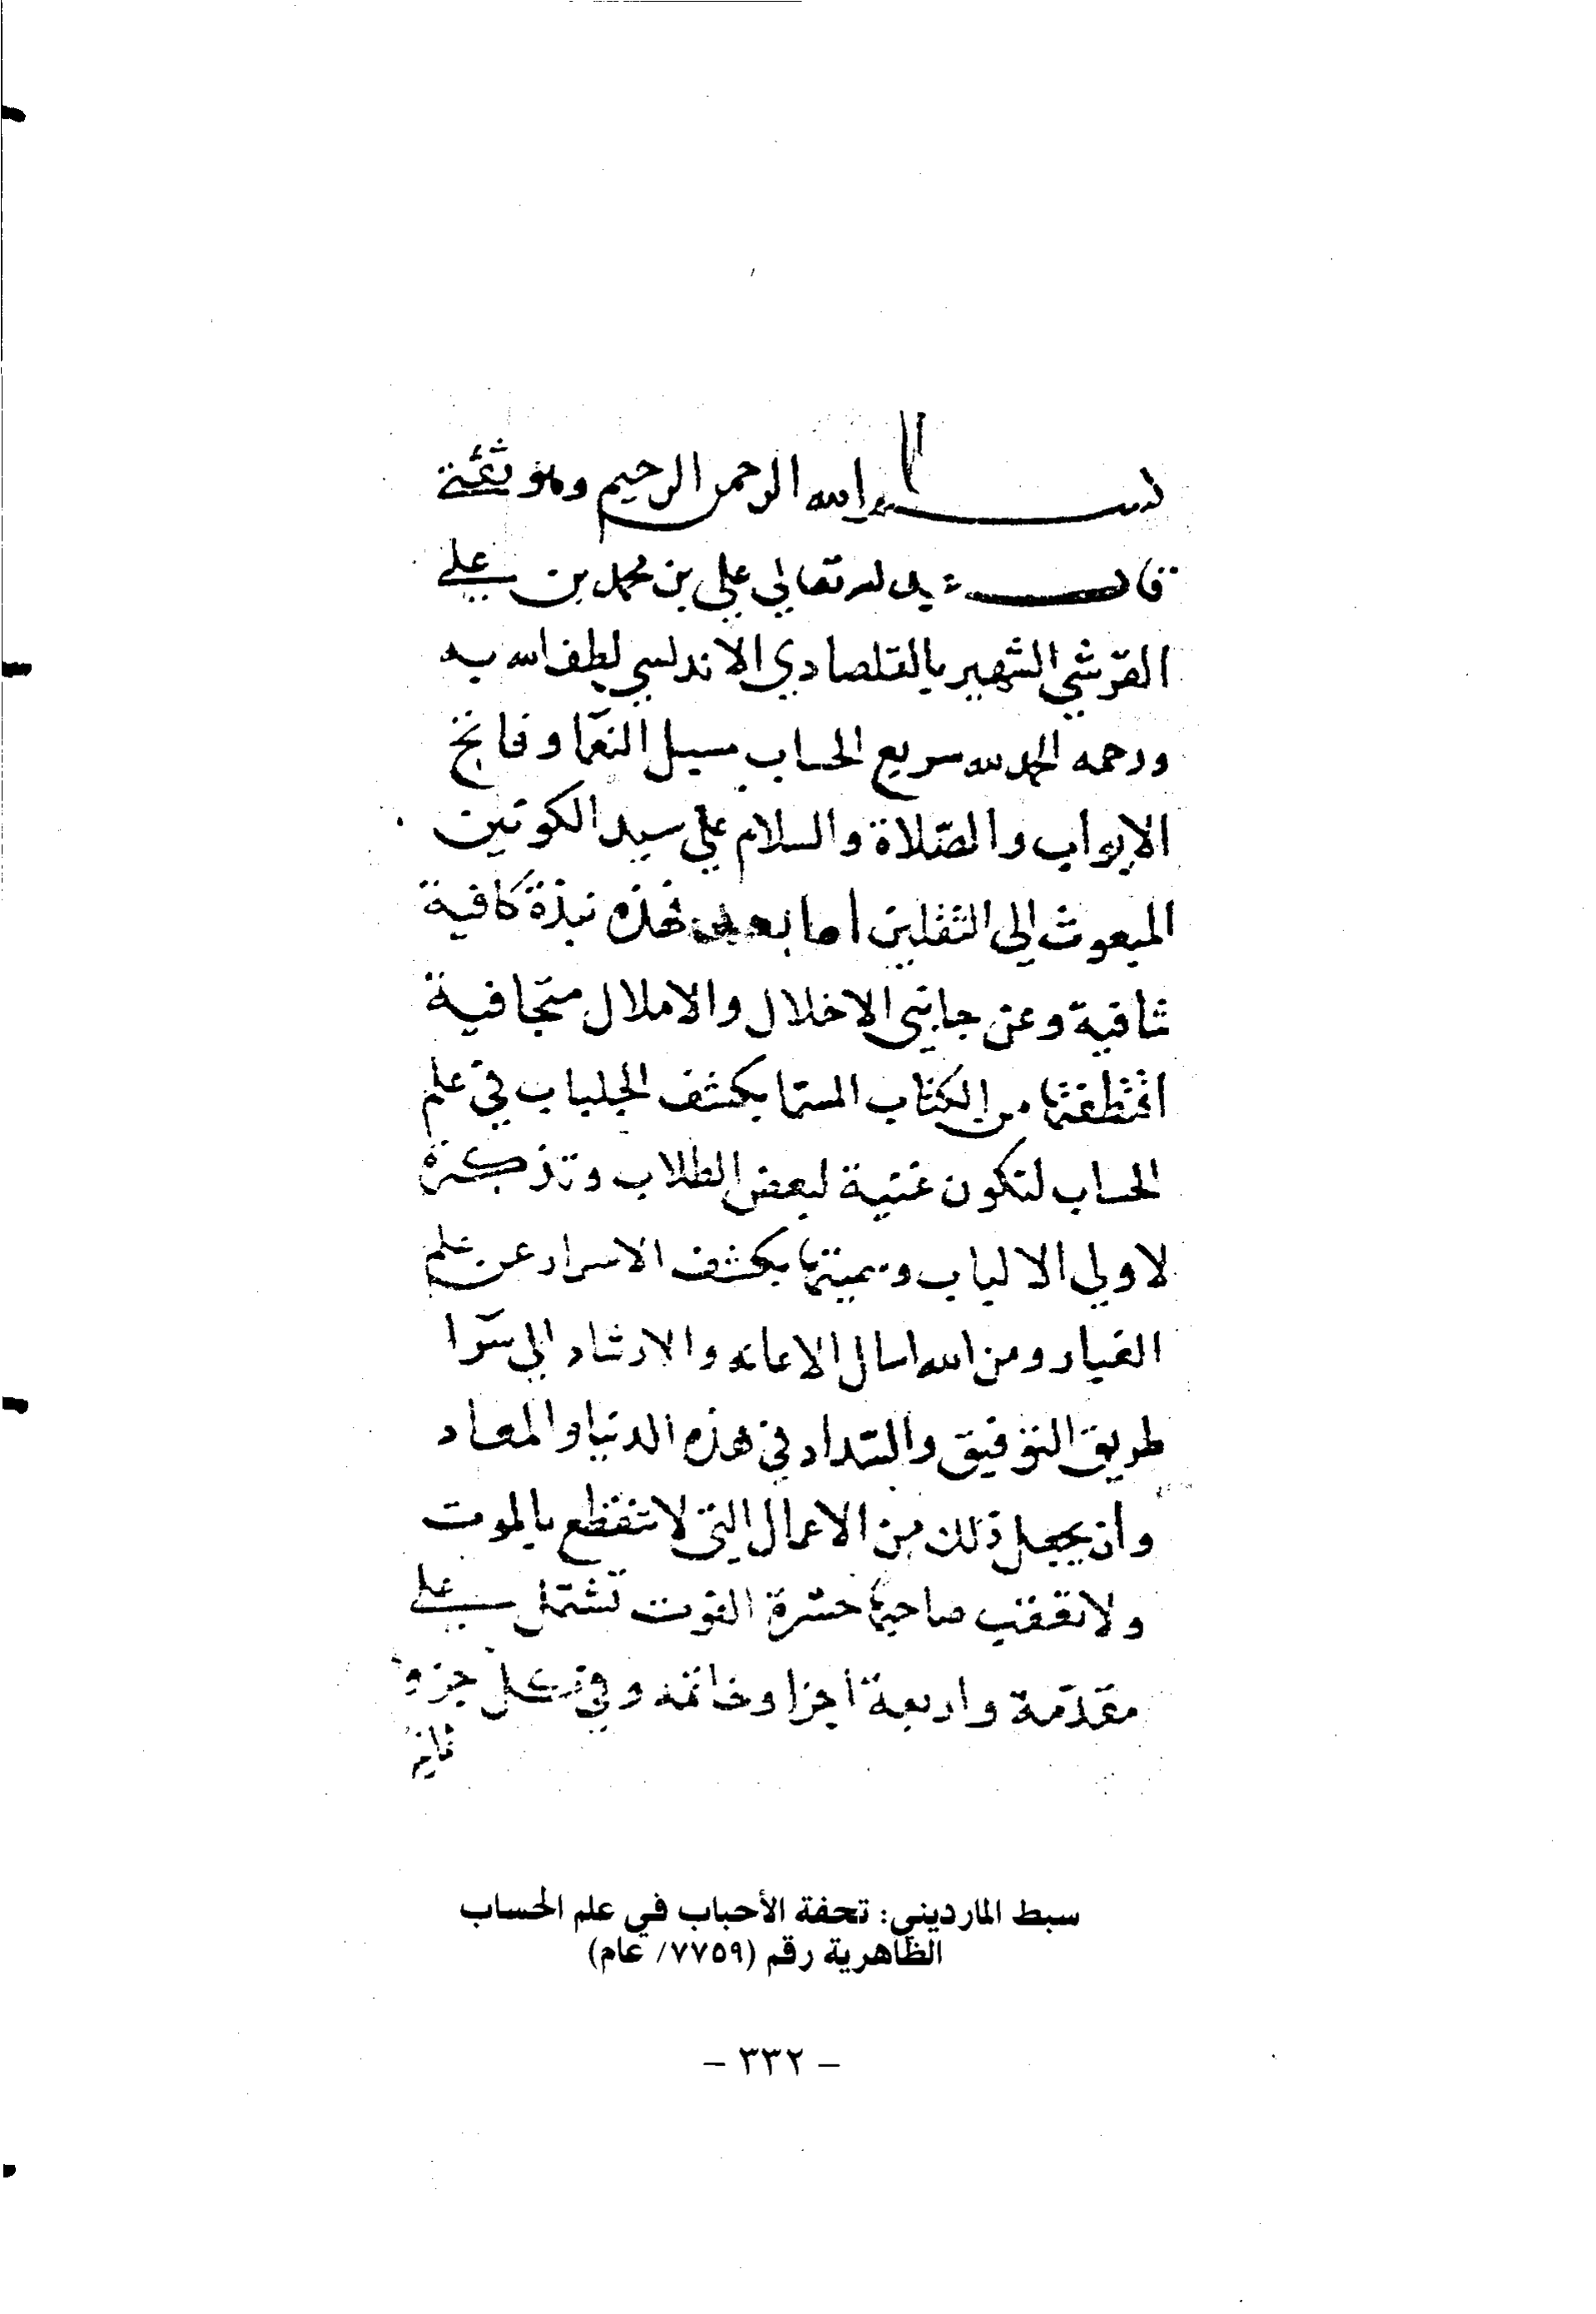 بسم الله الرحمن الرحيم وهو ثقتي
قال عبد الله تعالي علي بن محمد بن علي
القرشي الشهير بالقلصادي الاندلسي لطف الله به
ورحمه الحمد لله سريع الحساب مسبل النعما وفاتح
الابواب والصلاة والسلام علي سيد الكونين
المبعوث الي الثقلين اما بعد فهذه نبذة كافية
شافية وعن جانبي الاخلال والاملال متجافية
اقتطفتها من الكتاب المسما بكشف الجلباب في علم
الحساب لتكون غنية لبعض الطلاب وتذكرة
لاولي الالباب وسميتها بكشف الاسرار عن علم
الغبار ومن الله اسال الاعانه والارشاد الي سوا
طريق التوفيق والسداد في هذه الدنيا والمعاد
وان يجعل ذلك من الاعمال التي لا تنقطع بالموت
ولا تعقب صاحبها حسرة الفوت تشتمل علي
مقدمة واربعة اجزا وخاتمه وفي كل جزو
سبط المارديني: تحفة الأحباب في علم الحساب
الظاهرية رقم (٧٧٥٩/ عام)
- ٣٣٢ -